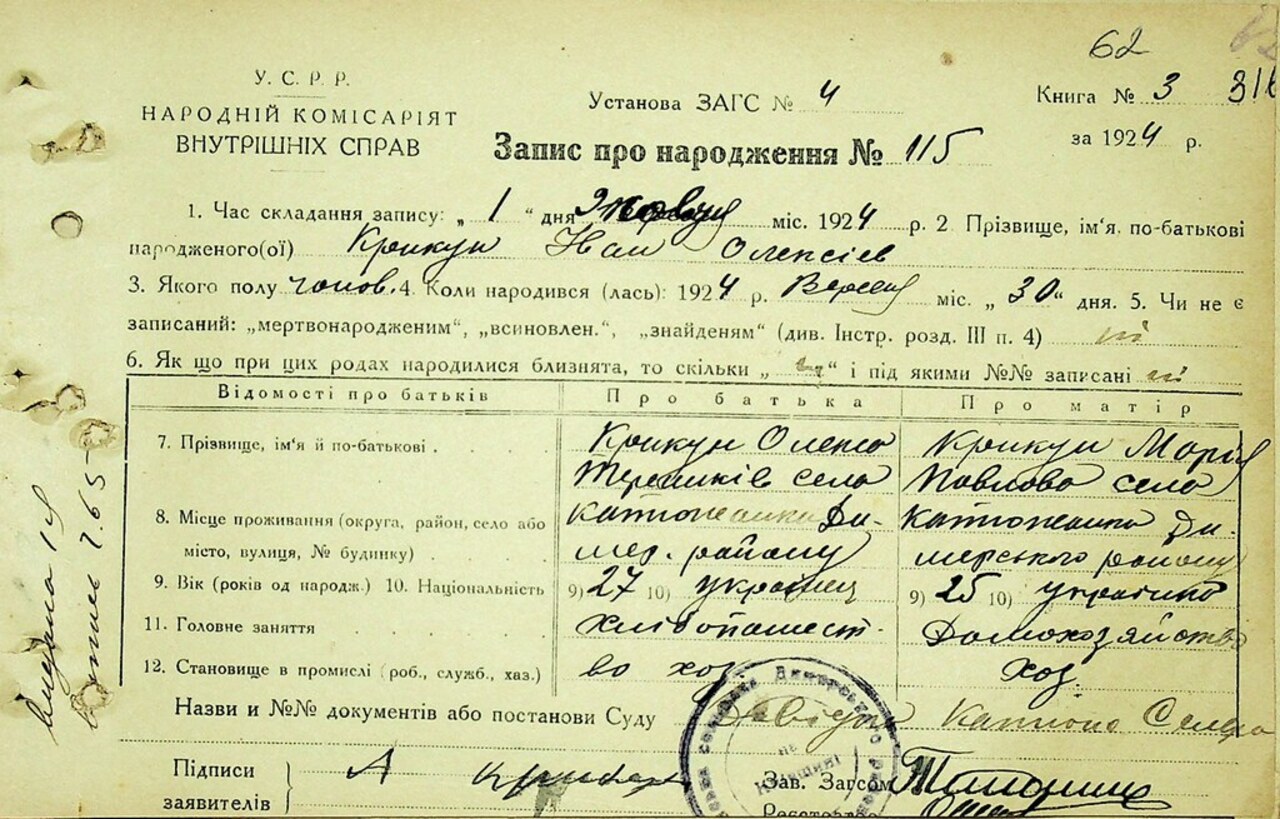 62
У. С. Р. Р.
НАРОДНІЙ КОМІСАРІЯТ
ВНУТРІШНІХ СПРАВ
Установа ЗАГС № 4
Книга № 3 316
за 1924 р.
Запис про народження № 115
1. Час складання запису: „ 1 “ дня Жовтня міс. 1924 р. 2 Прізвище, ім'я, по-батькові
народженого(ої) Крикун Іван Олексієв
3. Якого полу чолов. 4. Коли народився (лась): 1924 р. Вересня міс. „ 30 “ дня. 5. Чи не є
записаний: „мертвонародженим“, „всиновлен.“, „знайденям“ (див. Інстр. розд. III п. 4) ні
6. Як що при цих родах народилися близнята, то скільки „ “ і під якими №№ записані ні
Відомості про батьків Про батька Про матір
7. Прізвище, ім'я й по-батькові Крикун Олекса Крикун Марія
Терешків села Павлова села
8. Місце проживання (округа, район, село або Катюжанка Ди- Катюжанка Ди-
місто, вулиця, № будинку) мер. району мерського району
9. Вік (років од народж.) 10. Національність 9) 27 10) українец 9) 25 10) українка
11. Головне заняття хлібопашест- Домохозяйство
12. Становище в промислі (роб., служб., хаз.) во хоз хоз.
Назви и №№ документів або постанови Суду Довідка Катюжа
Підписи
заявителів А Крикун
Зав. Загсом
Реєстратор